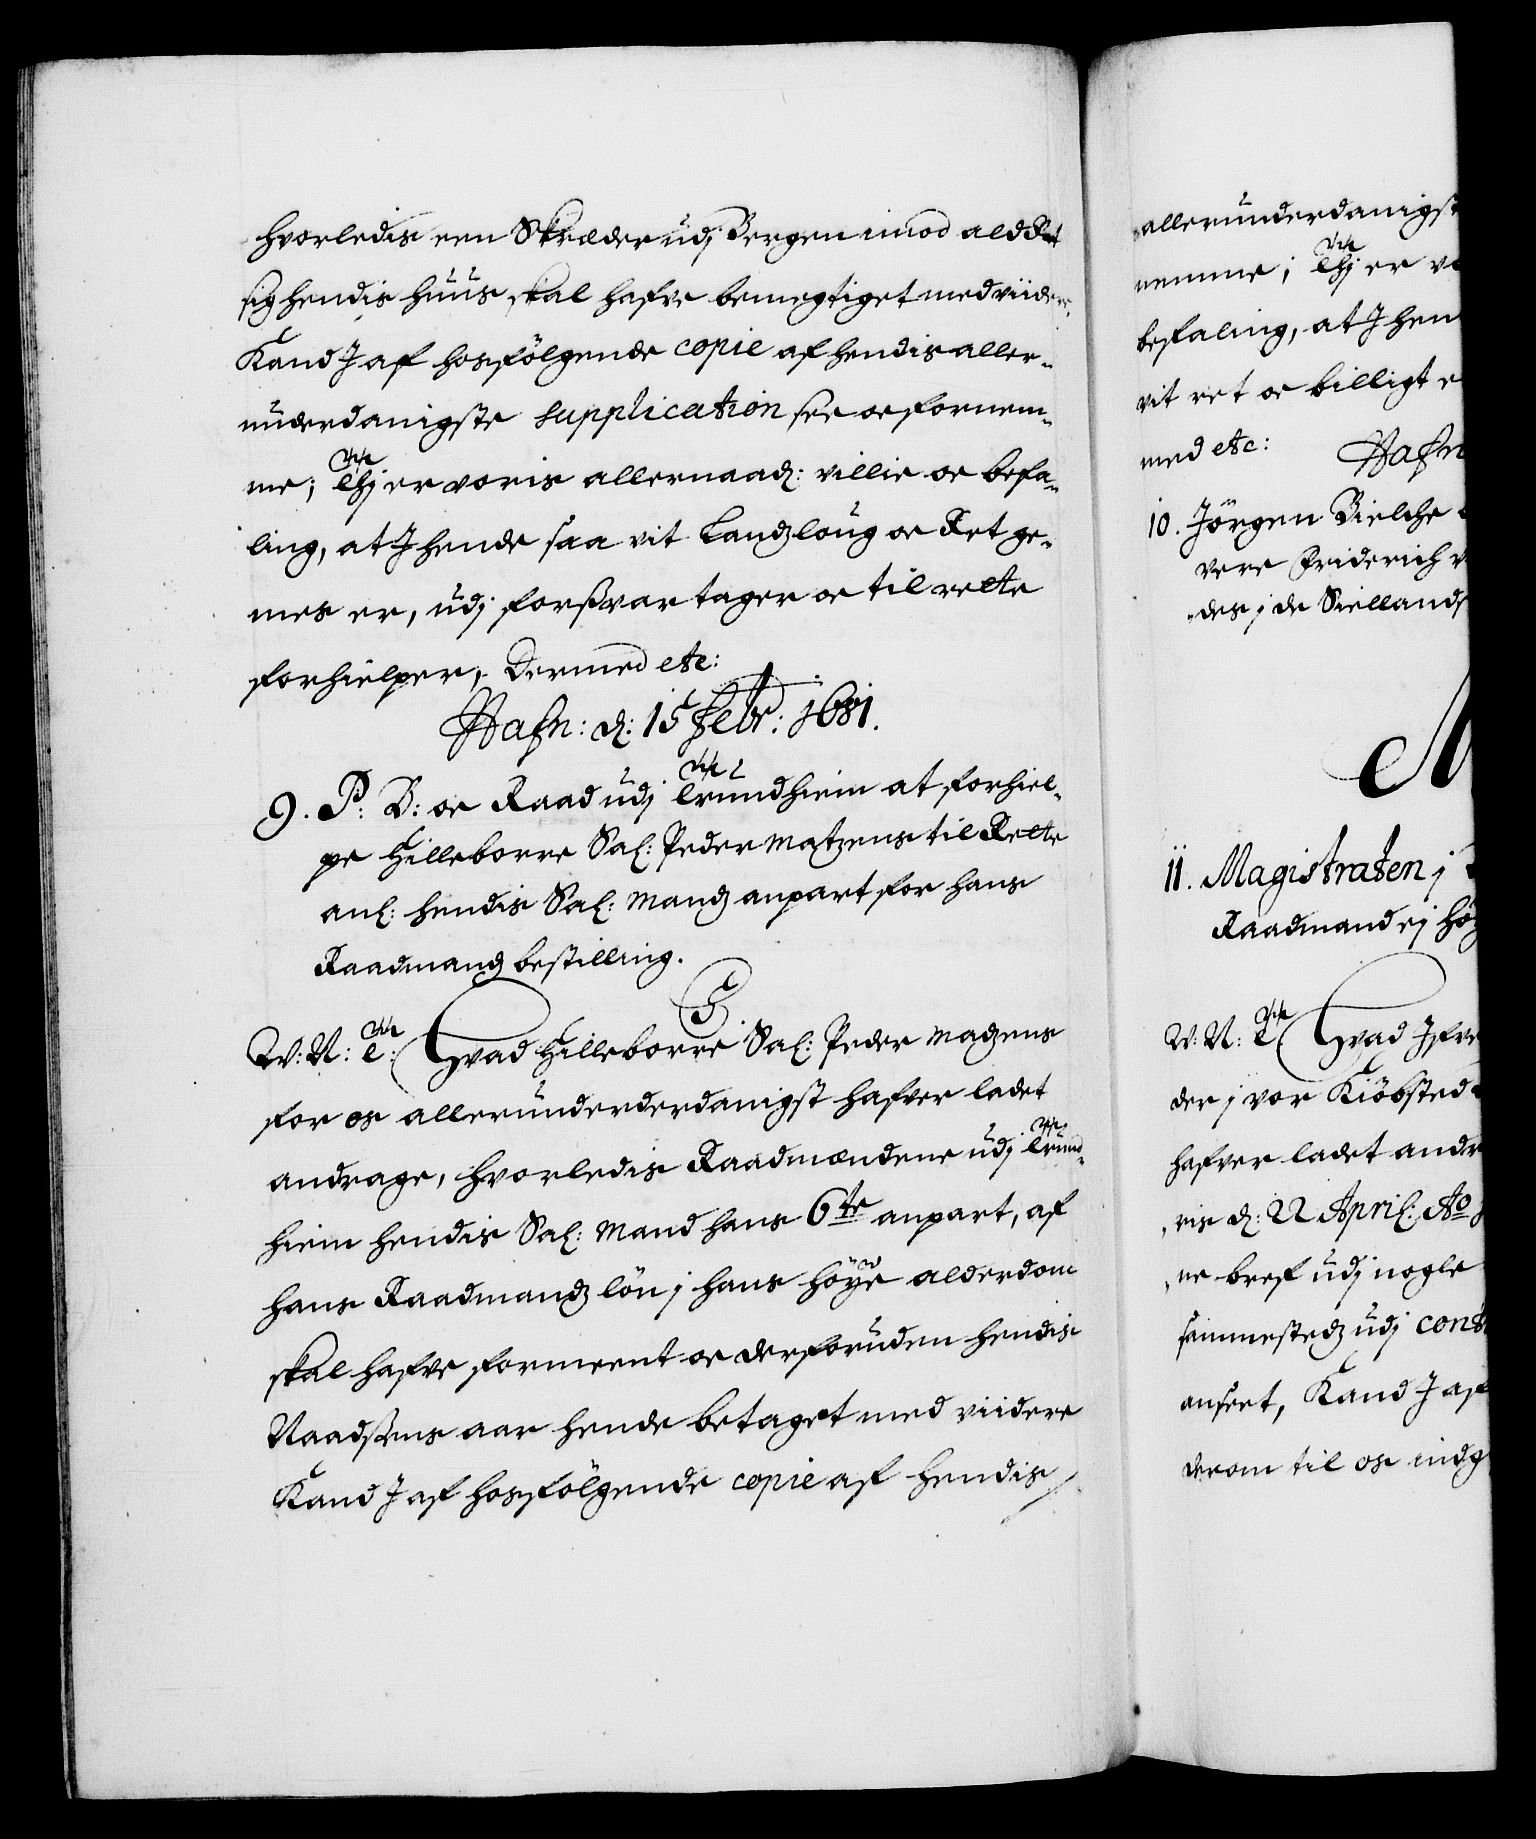 hvorledis een Skræder udj Bergen imod ald Ret
sig hendis huus skal hafve bemegtiget med viidere,
Kand J af hosfölgende copie af hendis aller-
underdanigste supplication see oc fornem-
me; Thj er voris allernaad: villie oc befa-
ling, at J hende saa vit Landzloug oc Ret ge-
mes er, udj forsvar tager oc til rette
forhielper, Dermed etc:
Hafn: d: 15 Febr: 1681.
9. P: B: oc Raad udj Trundhiem at forhiel-
pe Hilleborre Sal: Peder Matzens til Rette
anl: hendis Sal: Mandz anpart for hans
Raadmandz bestilling.
C5.
W: N: T: Hvad Hilleborre Sal: Peder Madzens
for os allerunderderdanigst hafver ladet
andrage, hvorledis Raadmændene udj Trund-
hiem hendis Sal: Mand hans 6te anpart, af
hans Raadmandz lön j hans höye alderdom
skal hafve formeent oc derforuden hendis
Naadsens aar hende betaget med viidere
Kand J af hosfölgende copie af hendis
allerunderdanigst
nemme; Thj er vo
befaling, at J hen
vit ret oc billigt e
med etc: Hafn
10. Jörgen Bielche
vere Friderich v
des j de Siellands
11. Magistraten j
Raadmand ej höy
W: N: T: Hvad Jfve
der j vor Kiöbsted
hafver ladet andr
ris d: 22 April: Ao
ne bref udj nogle
sammestedz udj cont
anseet, Kand J af
derom til os indg